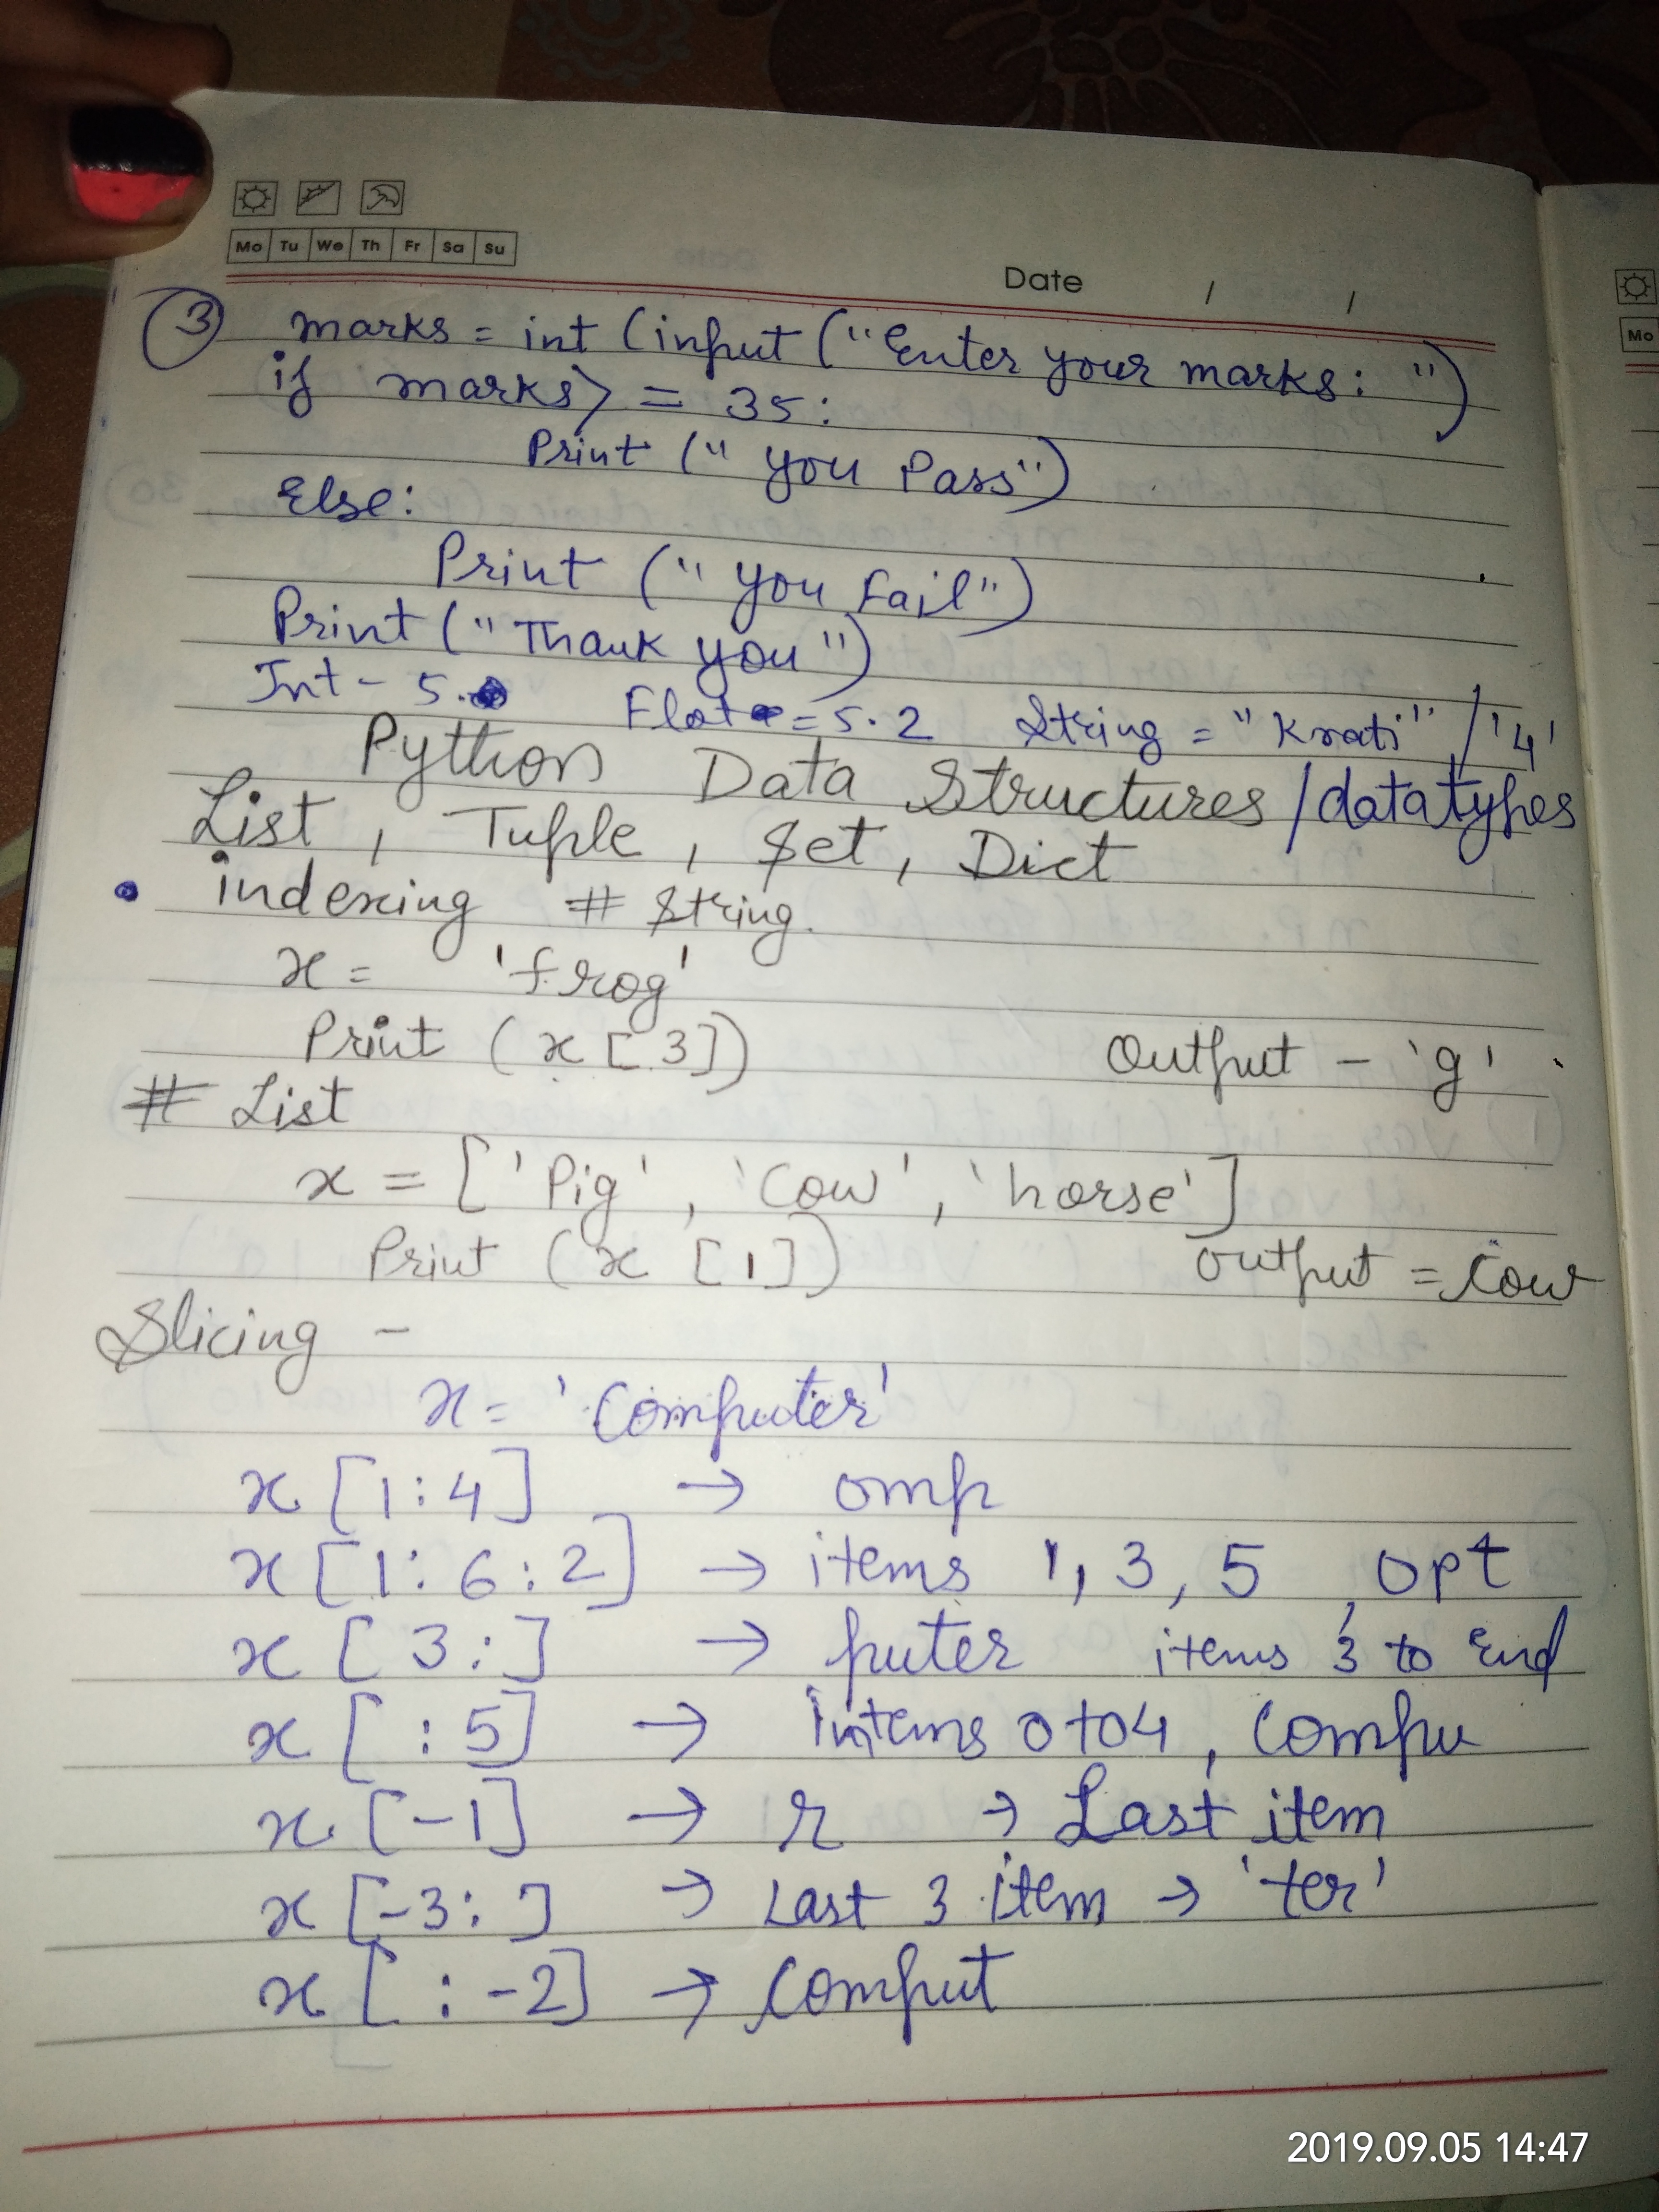 Mo Tu We Th Fr Sa Su
Date / /
③ marks = int (input ("Enter your marks: ")
if marks >= 35:
Print (" you Pass")
Else:
Print (" you Fail")
Print ("Thank you")
Int - 5. Flot = 5.2 String = "Krati" / '4'
Python Data Structures / datatypes
List, Tuple, Set, Dict
• indexing # String.
x = 'frog'
Print (x [3]) Output - 'g'
# List
x = ['Pig', 'Cow', 'horse']
Print (x [1]) output = Cow
Slicing -
x = 'Computer'
x [1:4] → omp
x [1:6:2] → items 1, 3, 5, opt
x [3:] → puter items 3 to End
x [:5] → Intems 0 to 4, Compu
x [-1] → r → Last item
x [-3:] → Last 3 item → 'ter'
x [:-2] → Comput
Mo
2019.09.05 14:47